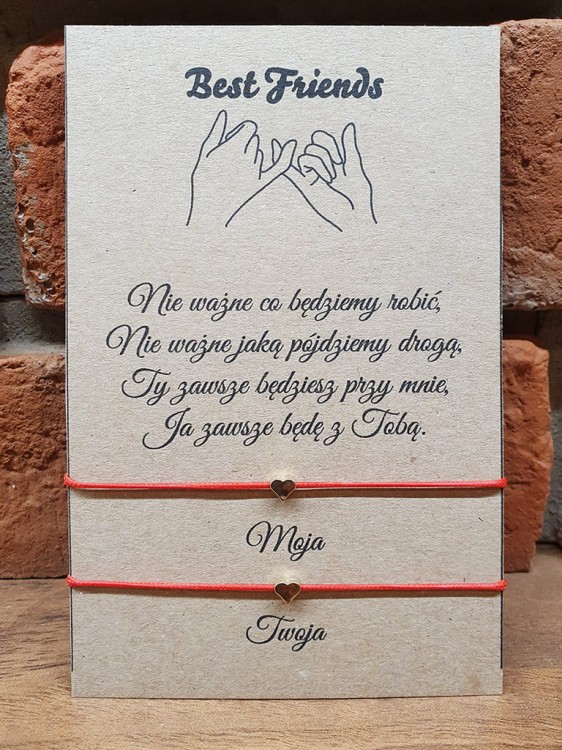 Best Friends
Nie ważne co będziemy robić,
Nie ważne jaką pójdziemy drogą,
Ty zawsze będziesz przy mnie,
Ja zawsze będę z Tobą.
Moja
Twoja